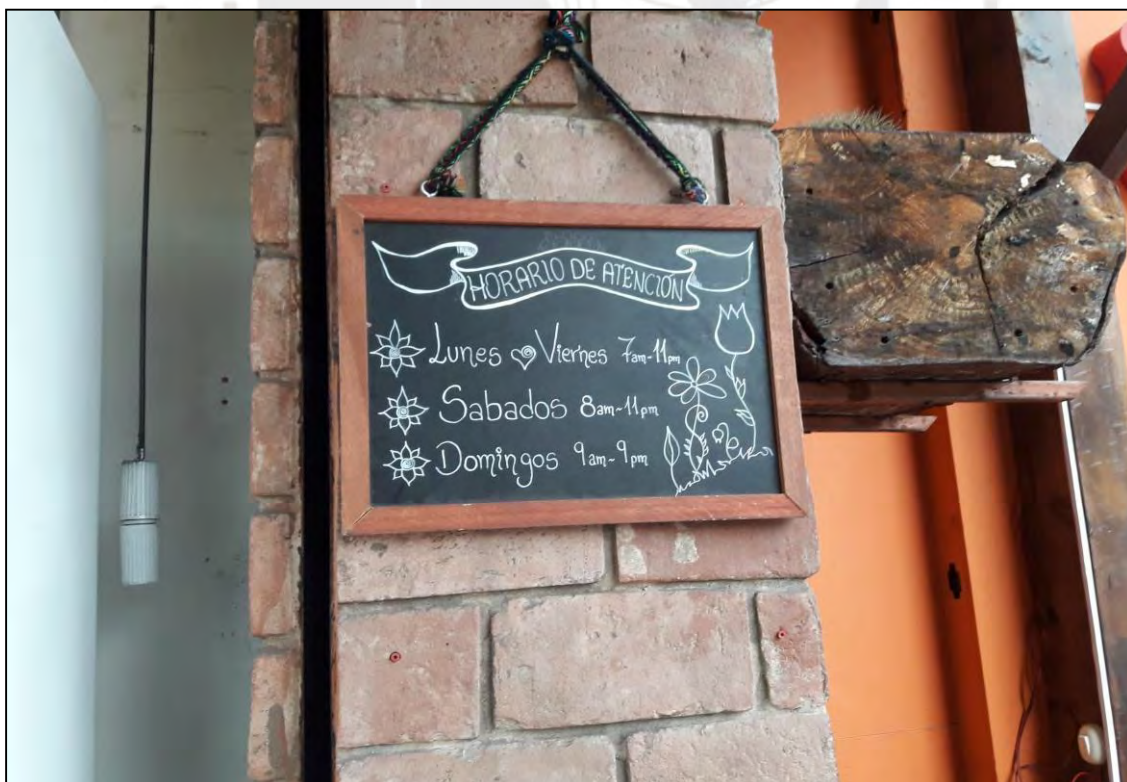 HORARIO DE ATENCION
Lunes Viernes 7am-11pm
Sabados 8am-11pm
Domingos 9am-9pm